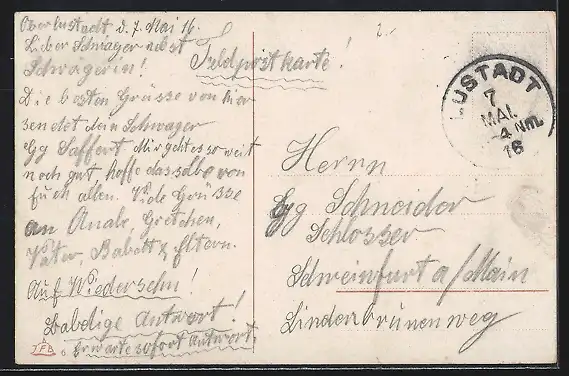 Oberlustadt d. 7. Mai 16.
Lieber Schwager nebst
Schwägerin!
Die besten Grüsse von hier
sendet dein Schwager
Gg Saffert Mir geht es so weit
noch gut hoffe dasselbe von
Euch allen. Viele Grüsse
an Anale, Gretchen,
Vater, Babett & Eltern.
Auf Wiedersehn!
Baldige Antwort!
Erwarte sofort Antwort.
Feldpostkarte!
LUSTADT
7
MAI.
4 Nm.
16
Herrn
Gg Schneider
Schlosser
Schweinfurt a/Main
Lindenbrünenweg